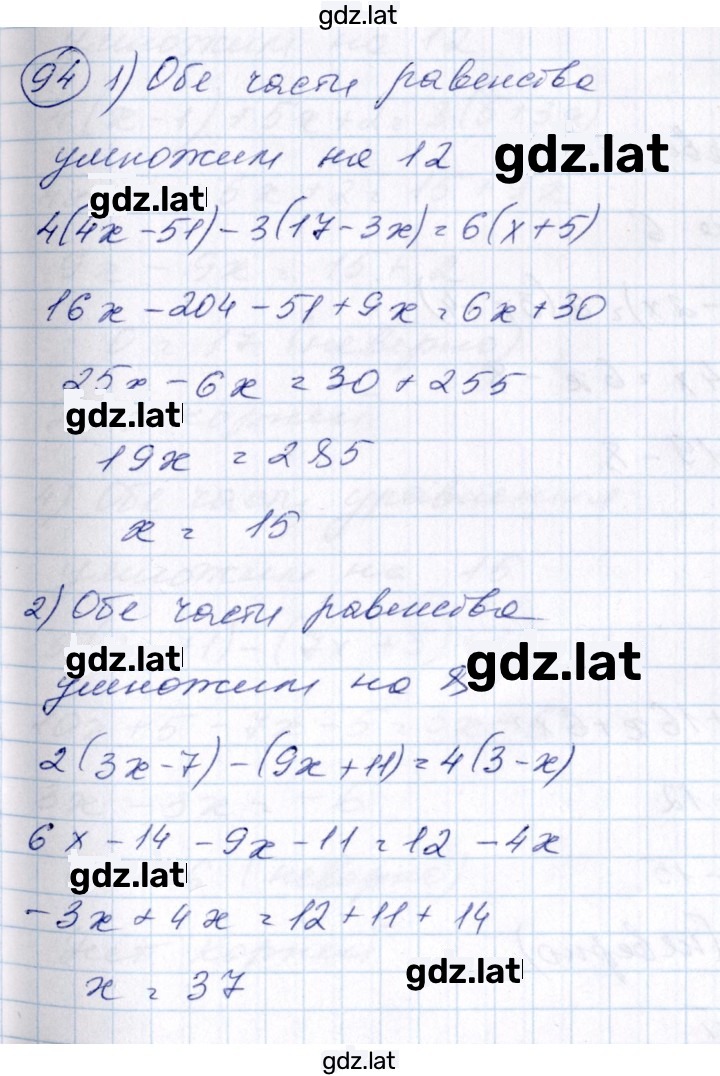 gdz.lat
94 1) Обе части равенства
умножим на 12
gdz.lat
gdz.lat
4(4x-51)-3(17-3x)=6(x+5)
16x-204-51+9x=6x+30
25x-6x=30+255
gdz.lat
19x=285
x=15
2) Обе части равенства
gdz.lat
gdz.lat
умножим на 8
2(3x-7)-(9x+11)=4(3-x)
6x-14-9x-11=12-4x
gdz.lat
-3x+4x=12+11+14
x=37
gdz.lat
gdz.lat